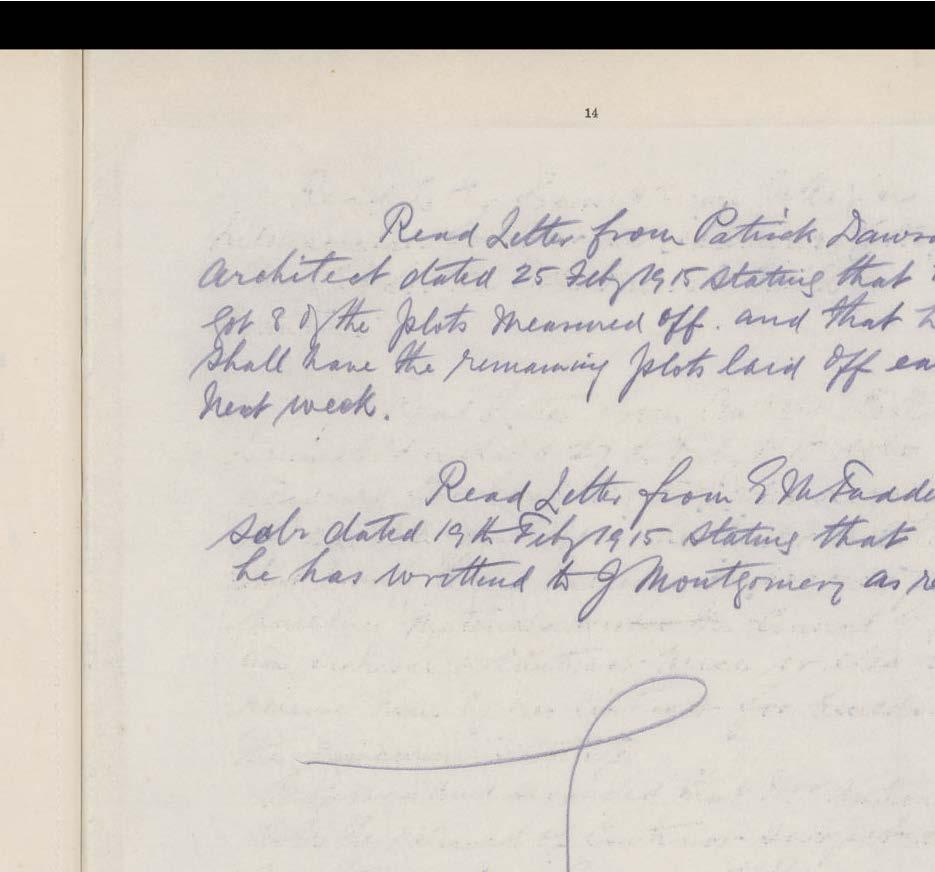 14
Read Letter from Patrick Daws
Architect dated 25 Feby 1915 stating that
got 8 of the plots measured off. and that h
shall have the remaining plots laid off ea
next week.
Read Letter from E McFadde
solr dated 19th Feby 1915 stating that
he has writtend to J Montgomery as re